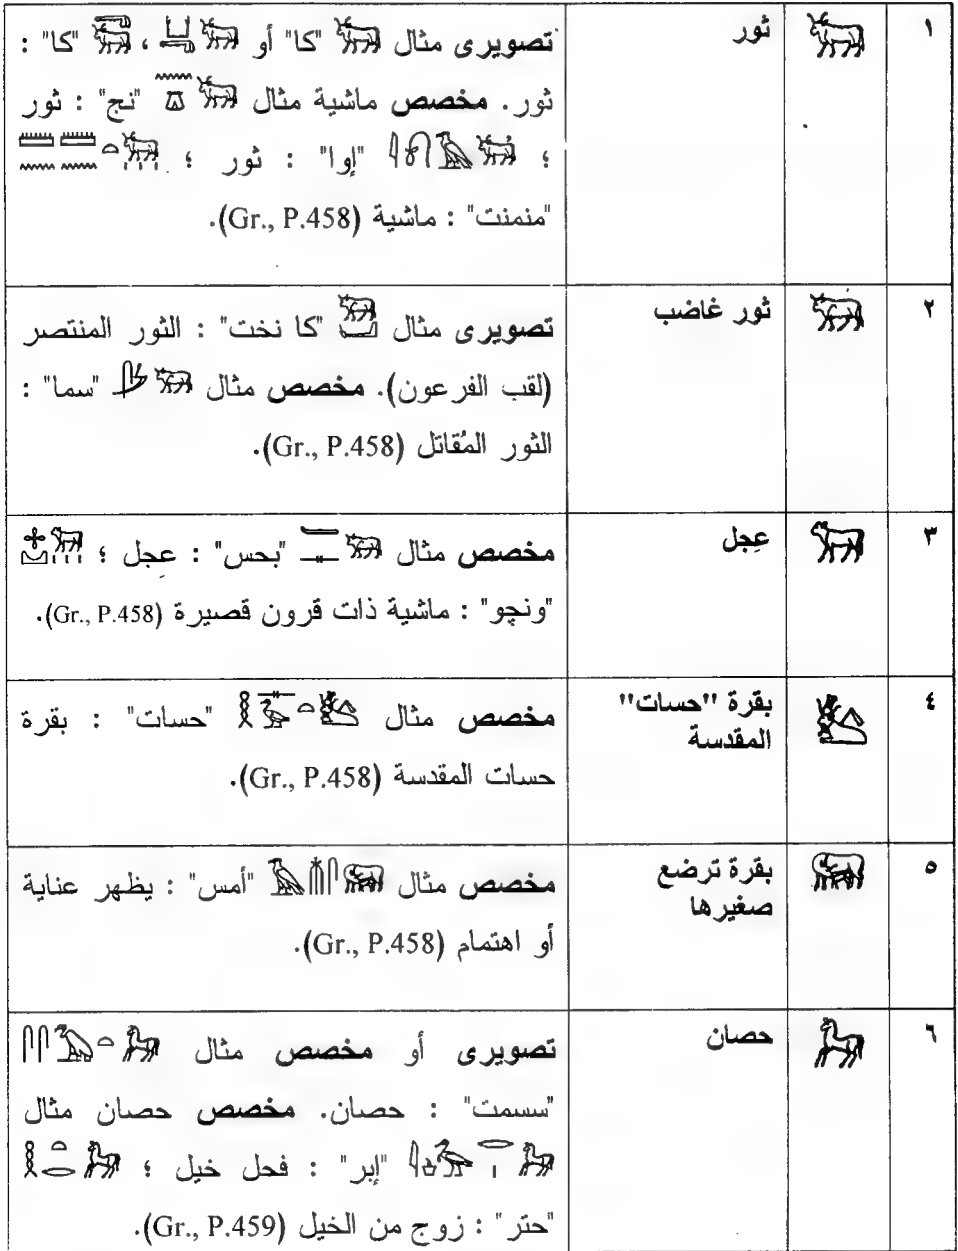 ١ ثور تصويرى مثال 𓃒 "كا" أو 𓂓𓂡𓃒 ، 𓃒 "كا" :
ثور. مخصص ماشية مثال 𓈖𓎼𓃒 "نج" : ثور
؛ 𓇋𓍯𓄿𓃒 "إوا" : ثور ؛ 𓏠𓈖𓏠𓈖𓏏𓃒𓏥
"منمنت" : ماشية (Gr., P.458).
٢ ثور غاضب تصويرى مثال "كا نخت" : الثور المنتصر
(لقب الفرعون). مخصص مثال "سما" :
الثور المُقاتل (Gr., P.458).
٣ عِجل مخصص مثال "بحس" : عجل ؛
"ونچو" : ماشية ذات قرون قصيرة (Gr., P.458).
٤ بقرة "حسات" مخصص مثال "حسات" : بقرة
المقدسة حسات المقدسة (Gr., P.458).
٥ بقرة ترضع مخصص مثال "أمس" : يظهر عناية
صغيرها أو اهتمام (Gr., P.458).
٦ حصان تصويرى أو مخصص مثال
"سسمت" : حصان. مخصص حصان مثال
"إبر" : فحل خيل ؛
"حتر" : زوج من الخيل (Gr., P.459).